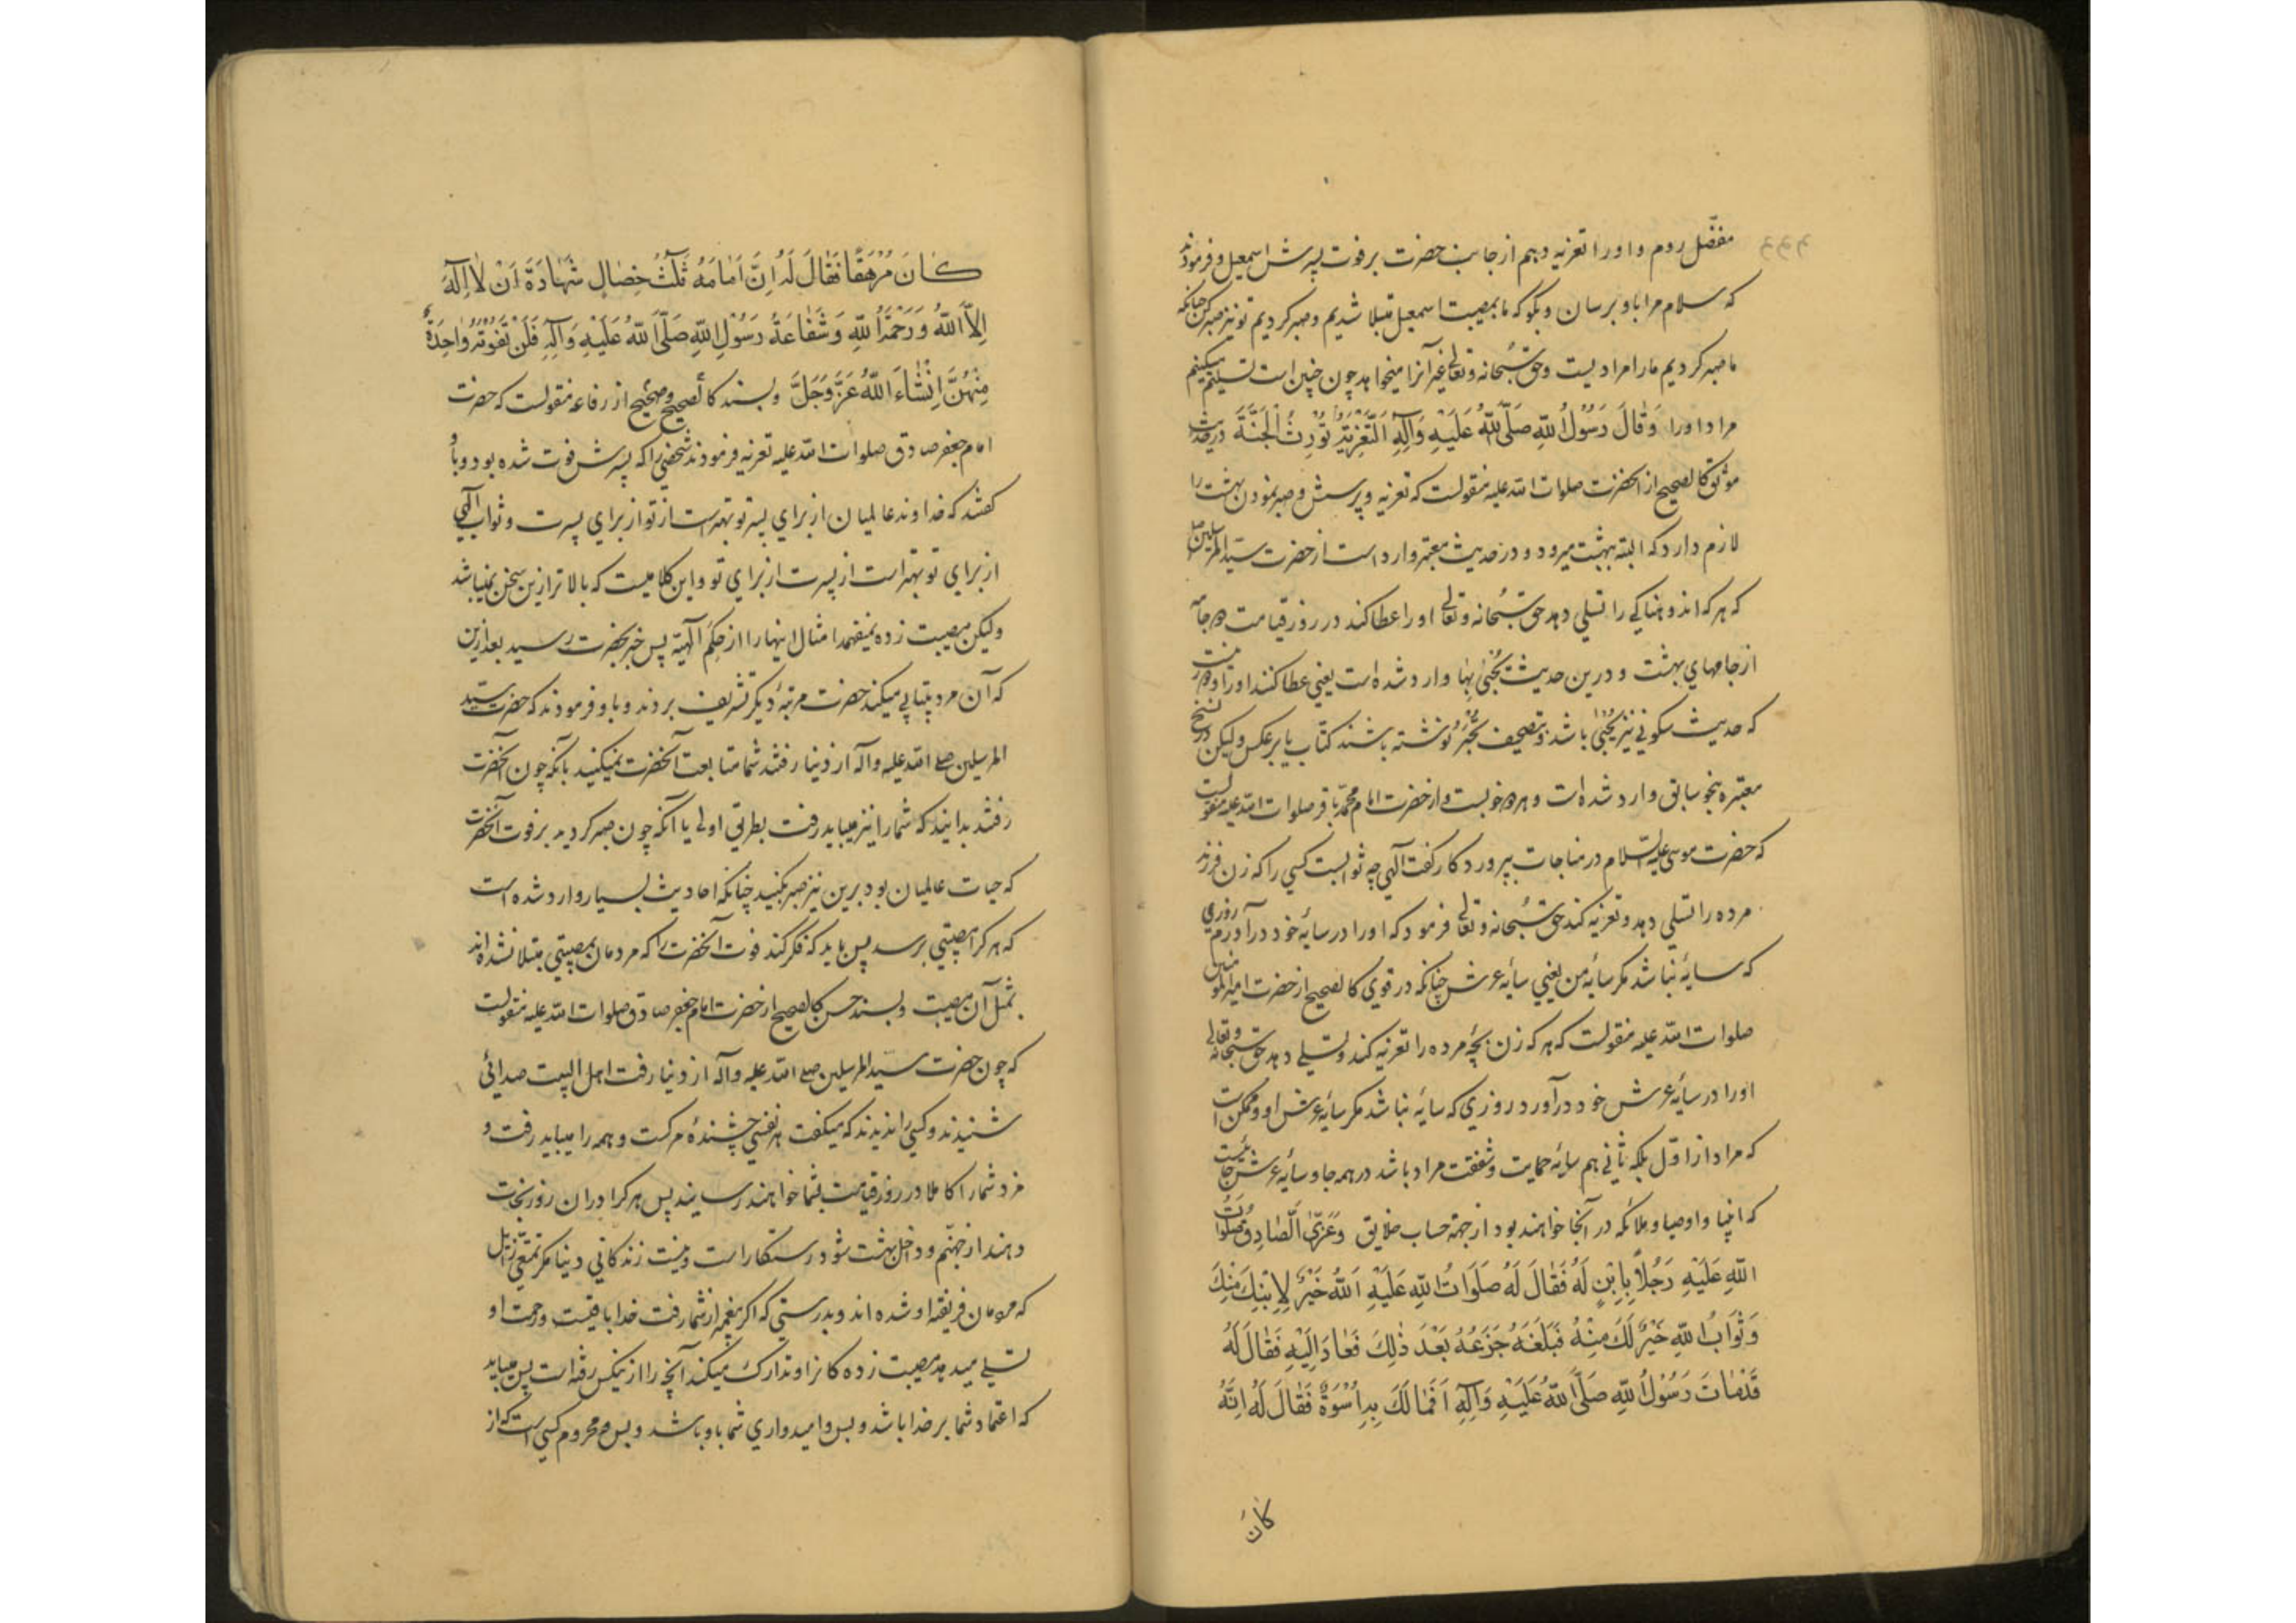 مفضّل روم و او را تعزیه دهم از جانب حضرت بر فوت پسرش اسمعیل و فرمودند
که سلام مرا باو برسان و بگو که ما بمصیبت اسمعیل مبتلا شدیم و صبر کردیم تو نیز صبر کن چنانکه
ما صبر کردیم ما را مرادیست و حق سُبحانه و تعالی غیر آنرا میخواهد چون چنین است تسلیم میکنیم
مراد او را وَقٰالَ رَسُولُ اللّٰهِ صَلَّى اللّٰهُ عَلَيْهِ وَآلِهِ اَلتَّعْزِيَةُ تُوْرِثُ الْجَنَّةَ در حدیث
موثق کالصحیح از آنحضرت صلوات الله علیه منقولست که تعزیه و پرسش و صبر نمودن بهشت را
لازم دارد که البته ببهشت میرود و در حدیث معتبر وارد است از حضرت سیّد المرسلین صلع
که هر که اندوهناکی را تسلی دهد حق سُبحانه و تعالی او را عطا کند در روز قیامت دو جامه
از جامهای بهشت و درین حدیث یُحْبٰی بِهٰا وارد شده است یعنی عطا کنند او را و دور نیست
که حدیث سکونی نیز یُحْبٰی باشد و بتصحیف یُحْبَرُ نوشته باشند کتاب یا برعکس ولیکن در نسخ
معتبره بنحو سابق وارد شده است و هر دو خوبست و از حضرت امام محمّد باقر صلوات الله علیه منقولست
که حضرت موسی علیه السّلام در مناجات بپروردکار کفت آلهی چه ثوابست کسی را که زن فرزند
مرده را تسلی دهد و تعزیه کند حق سُبحانه و تعالی فرمود که او را در سایهٔ خود در آورم روزی
که سایهٔ نباشد مکر سایهٔ من یعنی سایهٔ عرش چنانکه در قوی کالصحیح از حضرت امیر المؤمنین
صلوات الله علیه منقولست که هر که زن بچه مرده را تعزیه کند و تسلی دهد حق سبحانه و تعالی
او را در سایهٔ عرش خود در آورد روزی که سایهٔ نباشد مکر سایهٔ عرش او و ممکن است
که مراد از اوّل بلکه ثانی هم سایهٔ حمایت و شفقت مراد باشد در همه جا و سایهٔ عرش جائیست
که انبیا و اوصیا و ملائکه در آنجا خواهند بود از جهة حساب خلایق وَعَزَّى الصّٰادِقُ صَلَوٰاتُ
اللّٰهِ عَلَيْهِ رَجُلاً بِابْنٍ لَهُ فَقٰالَ لَهُ صَلَوَاتُ اللّٰهِ عَلَيْهِ اَللّٰهُ خَيْرٌ لِابْنِكَ مِنْكَ
وَثَوَابُ اللّٰهِ خَيْرٌ لَكَ مِنْهُ فَبَلَغَهُ جَزَعُهُ بَعْدَ ذٰلِكَ فَعٰادَ اِلَيْهِ فَقٰالَ لَهُ
قَدْ مٰاتَ رَسُوْلُ اللّٰهِ صَلَّى اللّٰهُ عَلَيْهِ وَآلِهِ اَفَمٰا لَكَ بِهِ اُسْوَةٌ فَقٰالَ لَهُ اِنَّهُ
کان
كٰانَ مُرَهَّقًا فَقٰالَ لَهُ اِنَّ اَمٰامَهُ ثَلٰثُ خِصٰالٍ شَهٰادَةُ اَنْ لٰا اِلٰهَ
اِلاَّ اللّٰهُ وَرَحْمَةُ اللّٰهِ وَشَفٰاعَةُ رَسُوْلِ اللّٰهِ صَلَّى اللّٰهُ عَلَيْهِ وَآلِهِ فَلَنْ تَفُوْتَهُ وٰاحِدَةٌ
مِنْهُنَّ اِنْشٰاءَ اللّٰهُ عَزَّ وَجَلَّ و بسند کالصحیح و صحیح از رفاعه منقولست که حضرت
امام جعفر صادق صلوات الله علیه تعزیه فرمودند شخصی را که پسرش فوت شده بود و باو
کفتند که خداوند عالمیان از برای پسر تو بهتر است از تو از برای پسرت و ثواب آلهی
از برای تو بهتر است از پسرت از برای تو و این کلامیست که بالاتر ازین سخن نمیباشد
ولیکن مصیبت زده نمیفهمد امثال اینها را از حِکَم آلهیّه پس خبر بحضرت رسید بعد ازین
که آن مرد بیتابی میکند حضرت مرتبهٔ دیکر تشریف بردند و باو فرمودند که حضرت سیّد
المرسلین صلی الله علیه وآله از دنیا رفتند شما متابعت آنحضرت نمیکنید بآنکه چون آنحضرت
رفتند بدانید که شما را نیز میباید رفت بطریق اولی یا آنکه چون صبر کردید بر فوت آنحضرت
که حیات عالمیان بود برین نیز صبر بکنید چنانکه احادیث بسیار وارد شده است
که هر کرا مصیبتی برسد پس باید که فکر کند فوت آنحضرت را که مردمان بمصیبتی مبتلا نشده‌اند
بمثل آن مصیبت و بسند حسن کالصحیح از حضرت امام جعفر صادق صلوات الله علیه منقولست
که چون حضرت سیّد المرسلین صلی الله علیه وآله از دنیا رفت اهل البیت صدائی
شنیدند و کسی را ندیدند که میکفت هر نفسی چشندهٔ مرکست و همه را میباید رفت و
مزد شما را کاملا در روز قیامت بشما خواهند رسانید پس هر کرا در ان روز نجات
دهند از جهنّم و داخل بهشت شود رستکار است و نیست زندکانی دنیا مکر تمتّعی زایل
که مردمان فریفته او شده اند و بدرستی که اکر پیغمبر از شما رفت خدا باقیست و رحمت او
تسلی میدهد مصیبت زده کانرا و تدارک میکند آنچه را از نیکس رفته است پس میباید
که اعتماد شما بر خدا باشد و بس و امیدواری شما باو باشد و بس و محروم کسی است که از